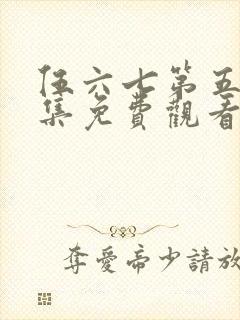 伍六七第五
集免費觀看
奪愛帝少請放